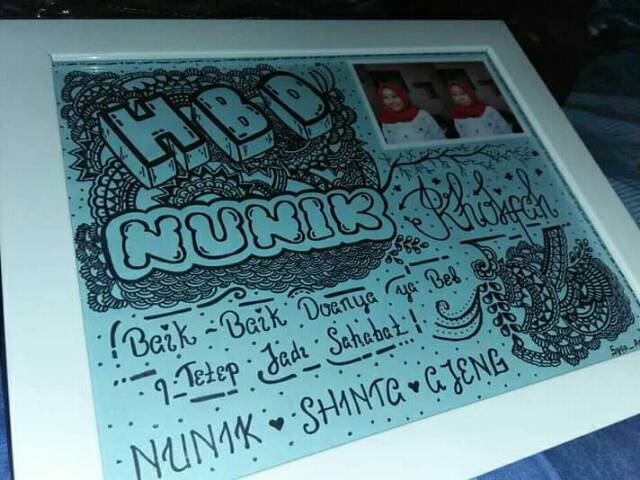 HBD
NUNIK
! Baik - Baik Doanya ya Beb
q Tetep Jadi Sahabat !
NUNIK ♥ SHINTA ♥ AJENG